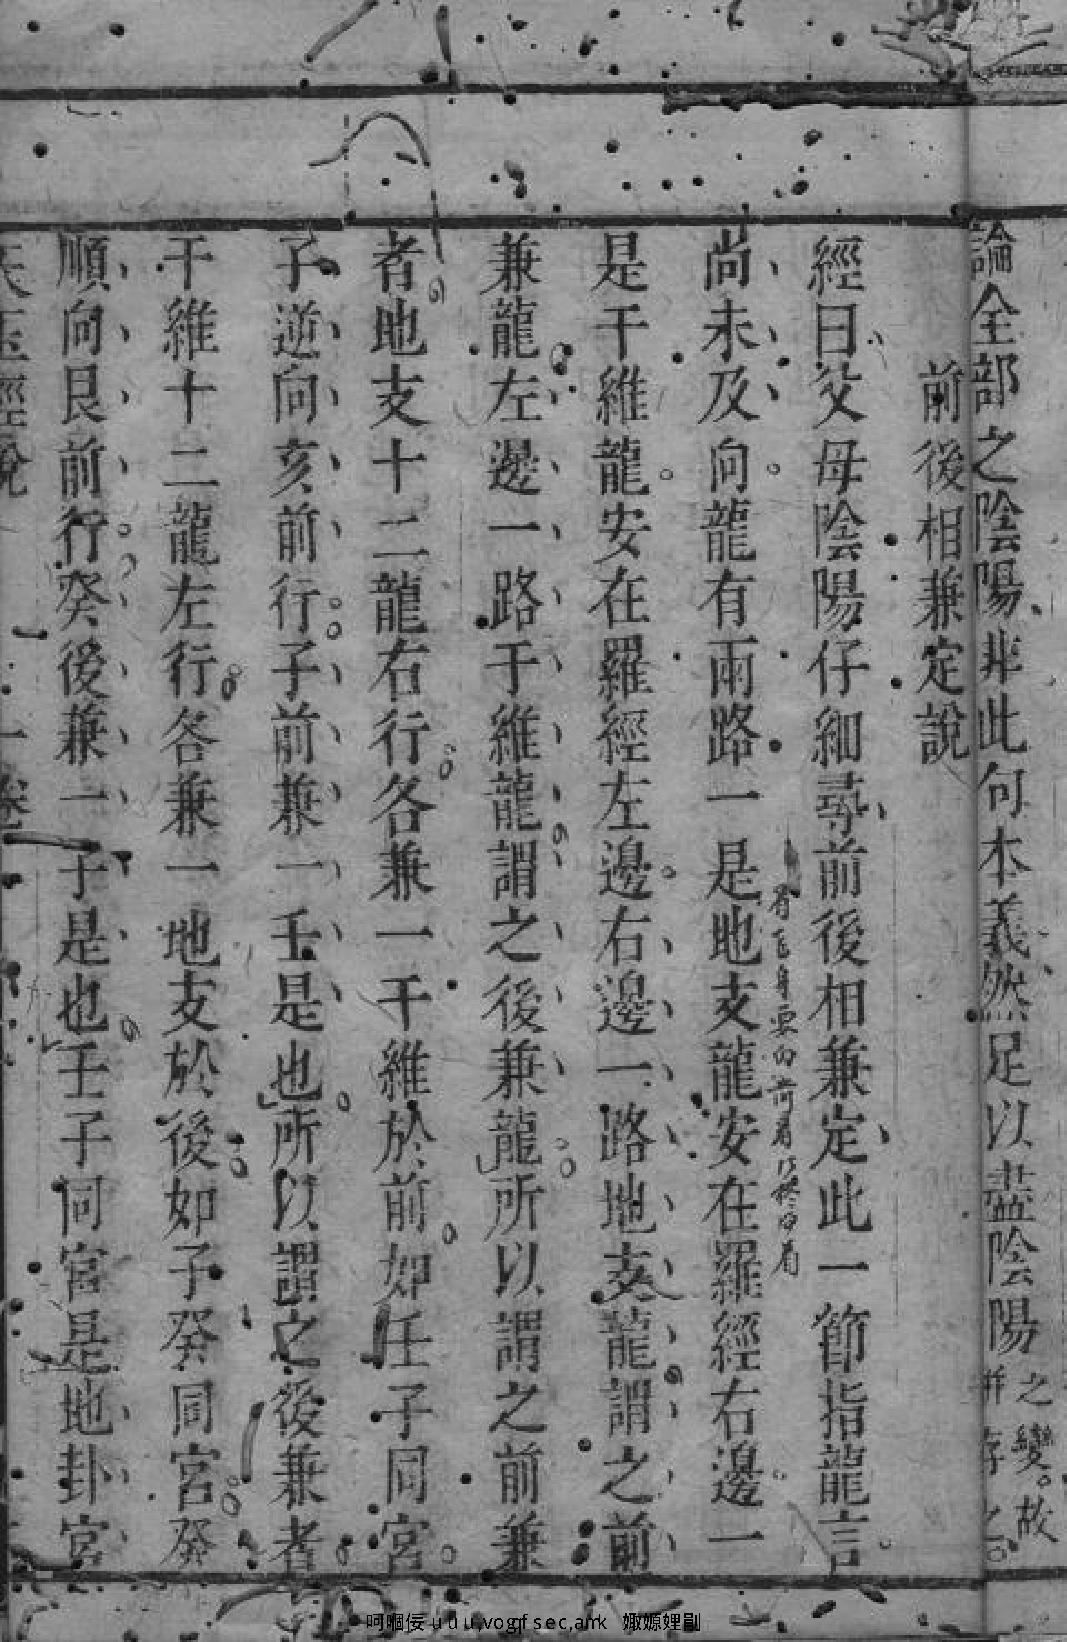 論全部之陰陽非此句本義然足以盡陰陽之變故并存之
前後相兼定說
經曰父母陰陽仔細尋前後相兼定此一節指龍言
尚未及向龍有兩路一是地支龍安在羅經右邊一
是干維龍安在羅經左邊右邊一路地支龍謂之前
兼龍左邊一路于維龍謂之後兼龍所以謂之前兼
者地支十二龍右行各兼一干維於前如任子同宮
子逆向亥前行子前兼一壬是也所以謂之後兼者
干維十二龍左行各兼一地支於後如子癸同宮癸
順向艮前行癸後兼一子是也壬子同宮是地卦宮
天玉經說 一卷